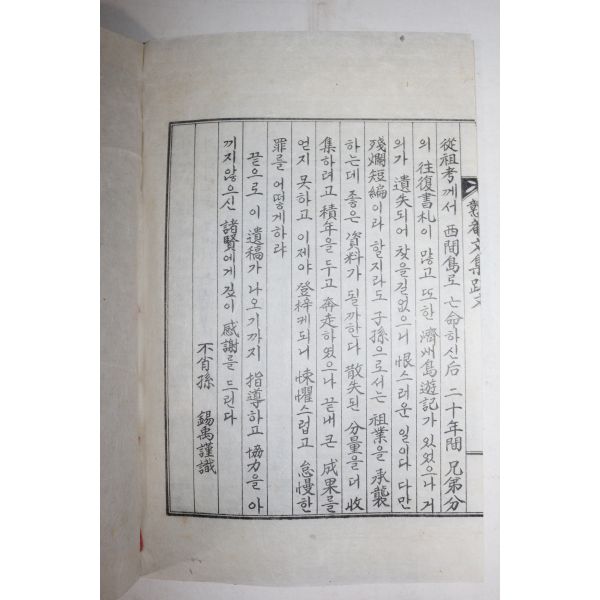 從祖考께서 西間島로 亡命하신后 二十年間 兄弟分
의 往復書札이 많고 또한 濟州島遊記가 있었으나 거
의가 遺失되어 찾을길없으니 恨스러운 일이다 다만
殘爛短編이라 할지라도 子孫으로서는 祖業을 承襲
하는데 좋은 資料가 될까한다 散失된 分量을 더 收
集하려고 積年을 두고 奔走하였으나 끝내 큰 成果를
얻지 못하고 이제야 登梓케되니 悚懼스럽고 怠慢한
罪를 어떻게하랴
끝으로 이 遺稿가 나오기까지 指導하고 協力을 아
끼지않으신 諸賢에게 깊이 感謝를 드린다
不肖孫 錫禹謹識
文集跋文